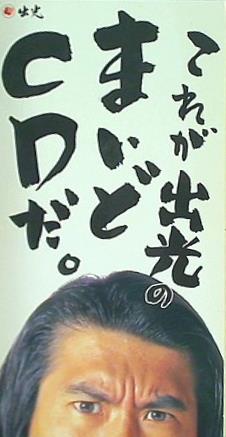 出光
これが出光の
まいど
CDだ。